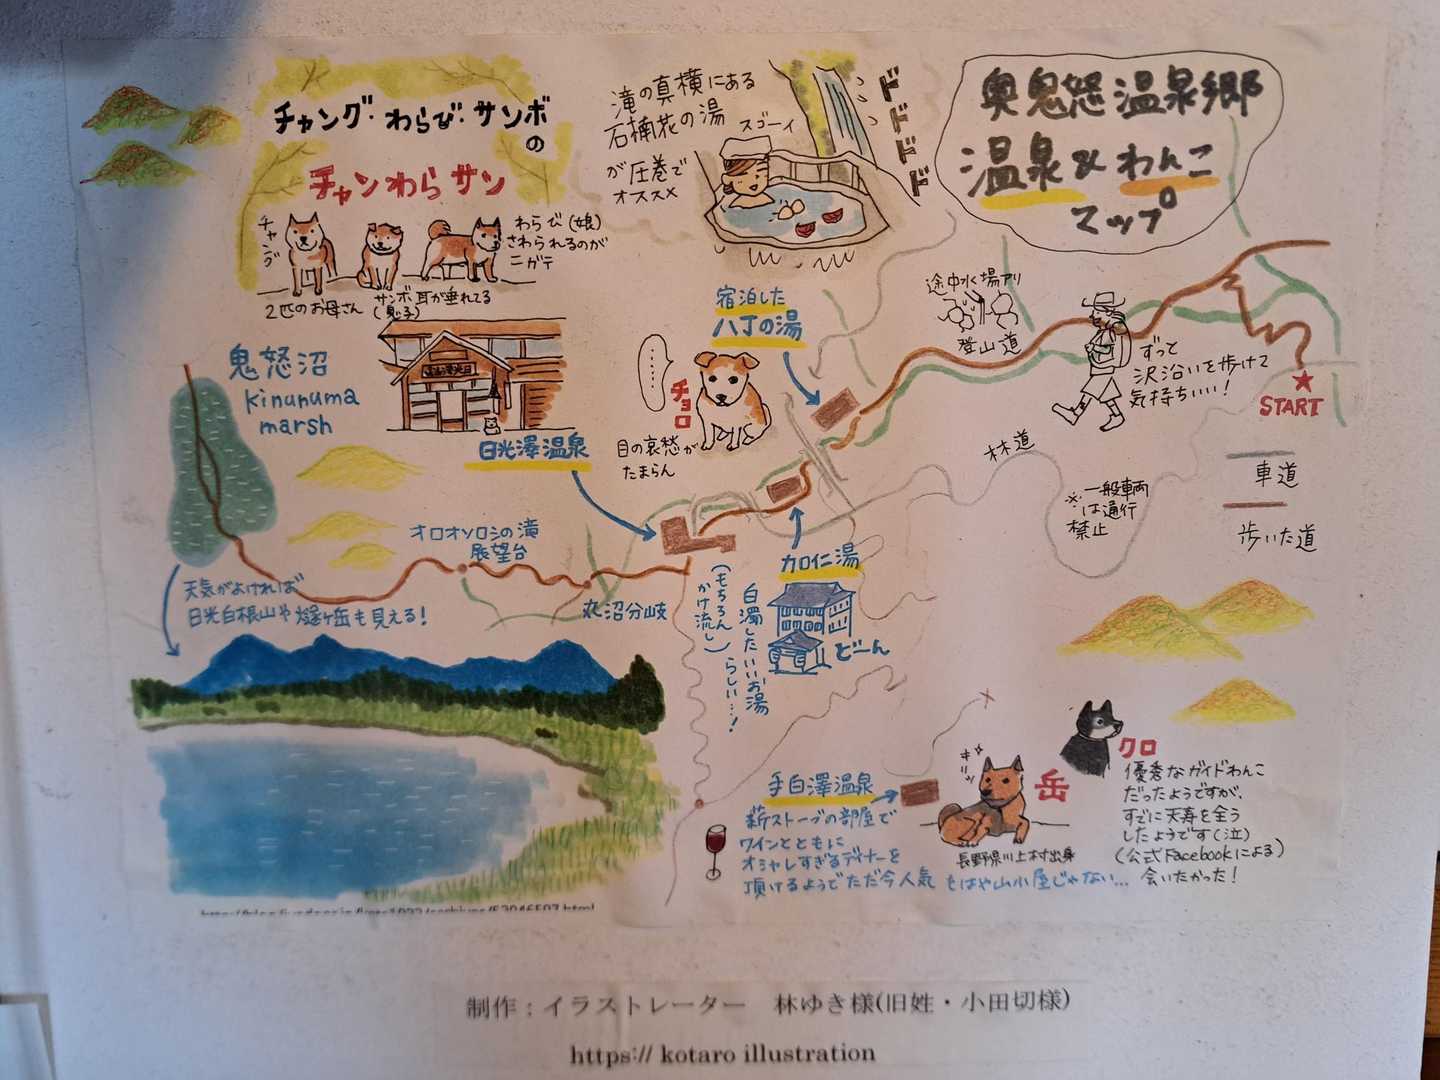 奥鬼怒温泉郷
温泉&わんこ
マップ
チャング・わらび・サンボ
の
チャンわらサン
チャング
2匹のお母さん
サンボ 耳が垂れてる
(息子)
わらび(娘)
さわられるのが
ニガテ
滝の真横にある
石楠花の湯
が圧巻で
オススメ
スゴーイ
ドドドドド
宿泊した
八丁の湯
途中水場アリ
登山道
ずっと
沢沿いを歩けて
気持ちいい!
START
鬼怒沼
kinunuma
marsh
日光澤温泉
チョロ
………
目の哀愁が
たまらん
林道
※一般車両
は通行
禁止
車道
歩いた道
オロオソロシの滝
展望台
丸沼分岐
天気がよければ
日光白根山や燧ヶ岳も見える!
加仁湯
どーん
白濁したいいお湯
らしい…!
(もちろん
かけ流し)
手白澤温泉
薪ストーブの部屋で
ワインとともに
オシャレすぎるディナーを
頂けるようでただ今人気 もはや山小屋じゃない…
キリッ
岳
長野県川上村出身
クロ
優秀なガイドわんこ
だったようですが、
すでに天寿を全う
したようです(泣)
(公式Facebookによる)
会いたかった!
制作:イラストレーター 林ゆき様(旧姓・小田切様)
https:// kotaro illustration